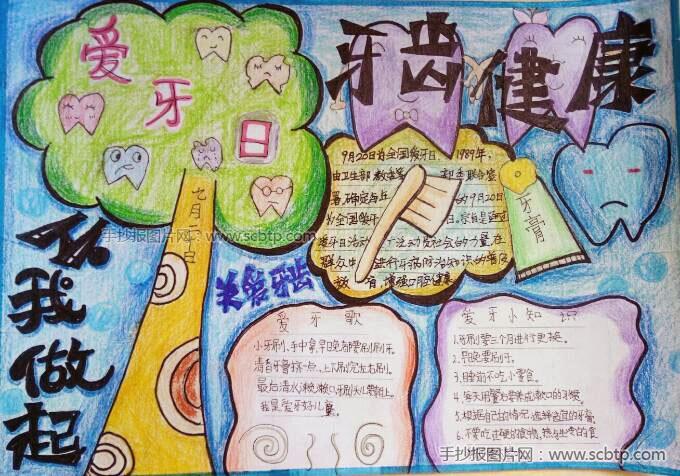 爱
牙
日
九月
日
牙齿健康
从我做起
关爱牙齿
9月20日为全国爱牙日,1989年,
由卫生部
署,确定每
的9月20日
为全国爱牙
日活动
社会的力量,在
群众中
进行牙病防治知识的普及
教育,增强口腔健康
牙膏
手抄报图片网:www.scbtp.com
手抄报图片网:www.scbtp.com
爱牙歌
小牙刷,手中拿,早日晚都要刷刷牙。
清白牙膏挤一点,上下刷完左右刷。
最后清水漱漱口,牙刷头儿要朝上。
我是爱牙好儿童。
爱牙小知识
1.牙刷第三个月进行更换。
2.早日晚要刷牙。
3.日睡前不吃小零食。
4.每天用餐后要养成漱口的习惯。
5.根据自己的情况,选择适宜的牙膏。
6.不要吃过硬的食物,
食
手抄报图片网:www.scbtp.com